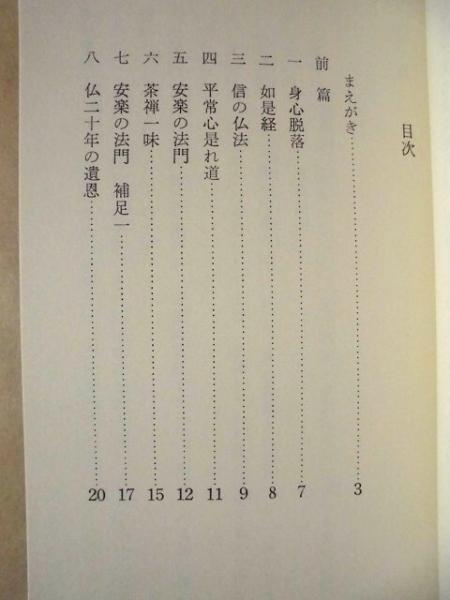 目次
まえがき……………3
前篇
一　身心脱落……………7
二　如是経……………8
三　信の仏法……………9
四　平常心是れ道……………11
五　安楽の法門……………12
六　茶禅一味……………15
七　安楽の法門　補足一……………17
八　仏二十年の遺恩……………20